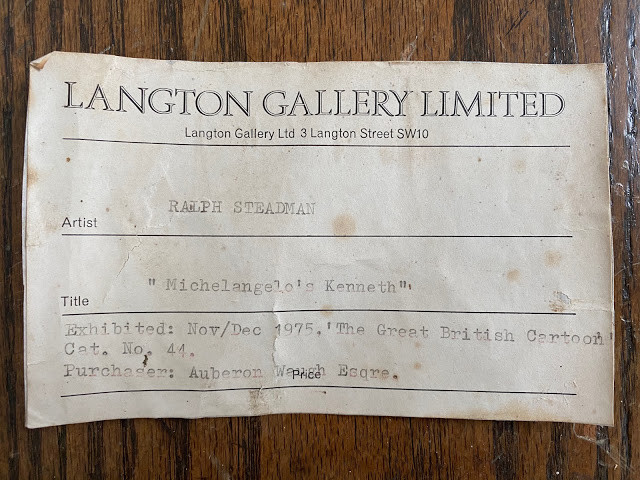 LANGTON GALLERY LIMITED
Langton Gallery Ltd 3 Langton Street SW10
RALPH STEADMAN
Artist
" Michelangelo's Kenneth".
Title
Exhibited: Nov/Dec 1975.'The Great British Cartoon'
Cat. No. 44.
Purchaser: Auberon Waugh Esqre.
Price